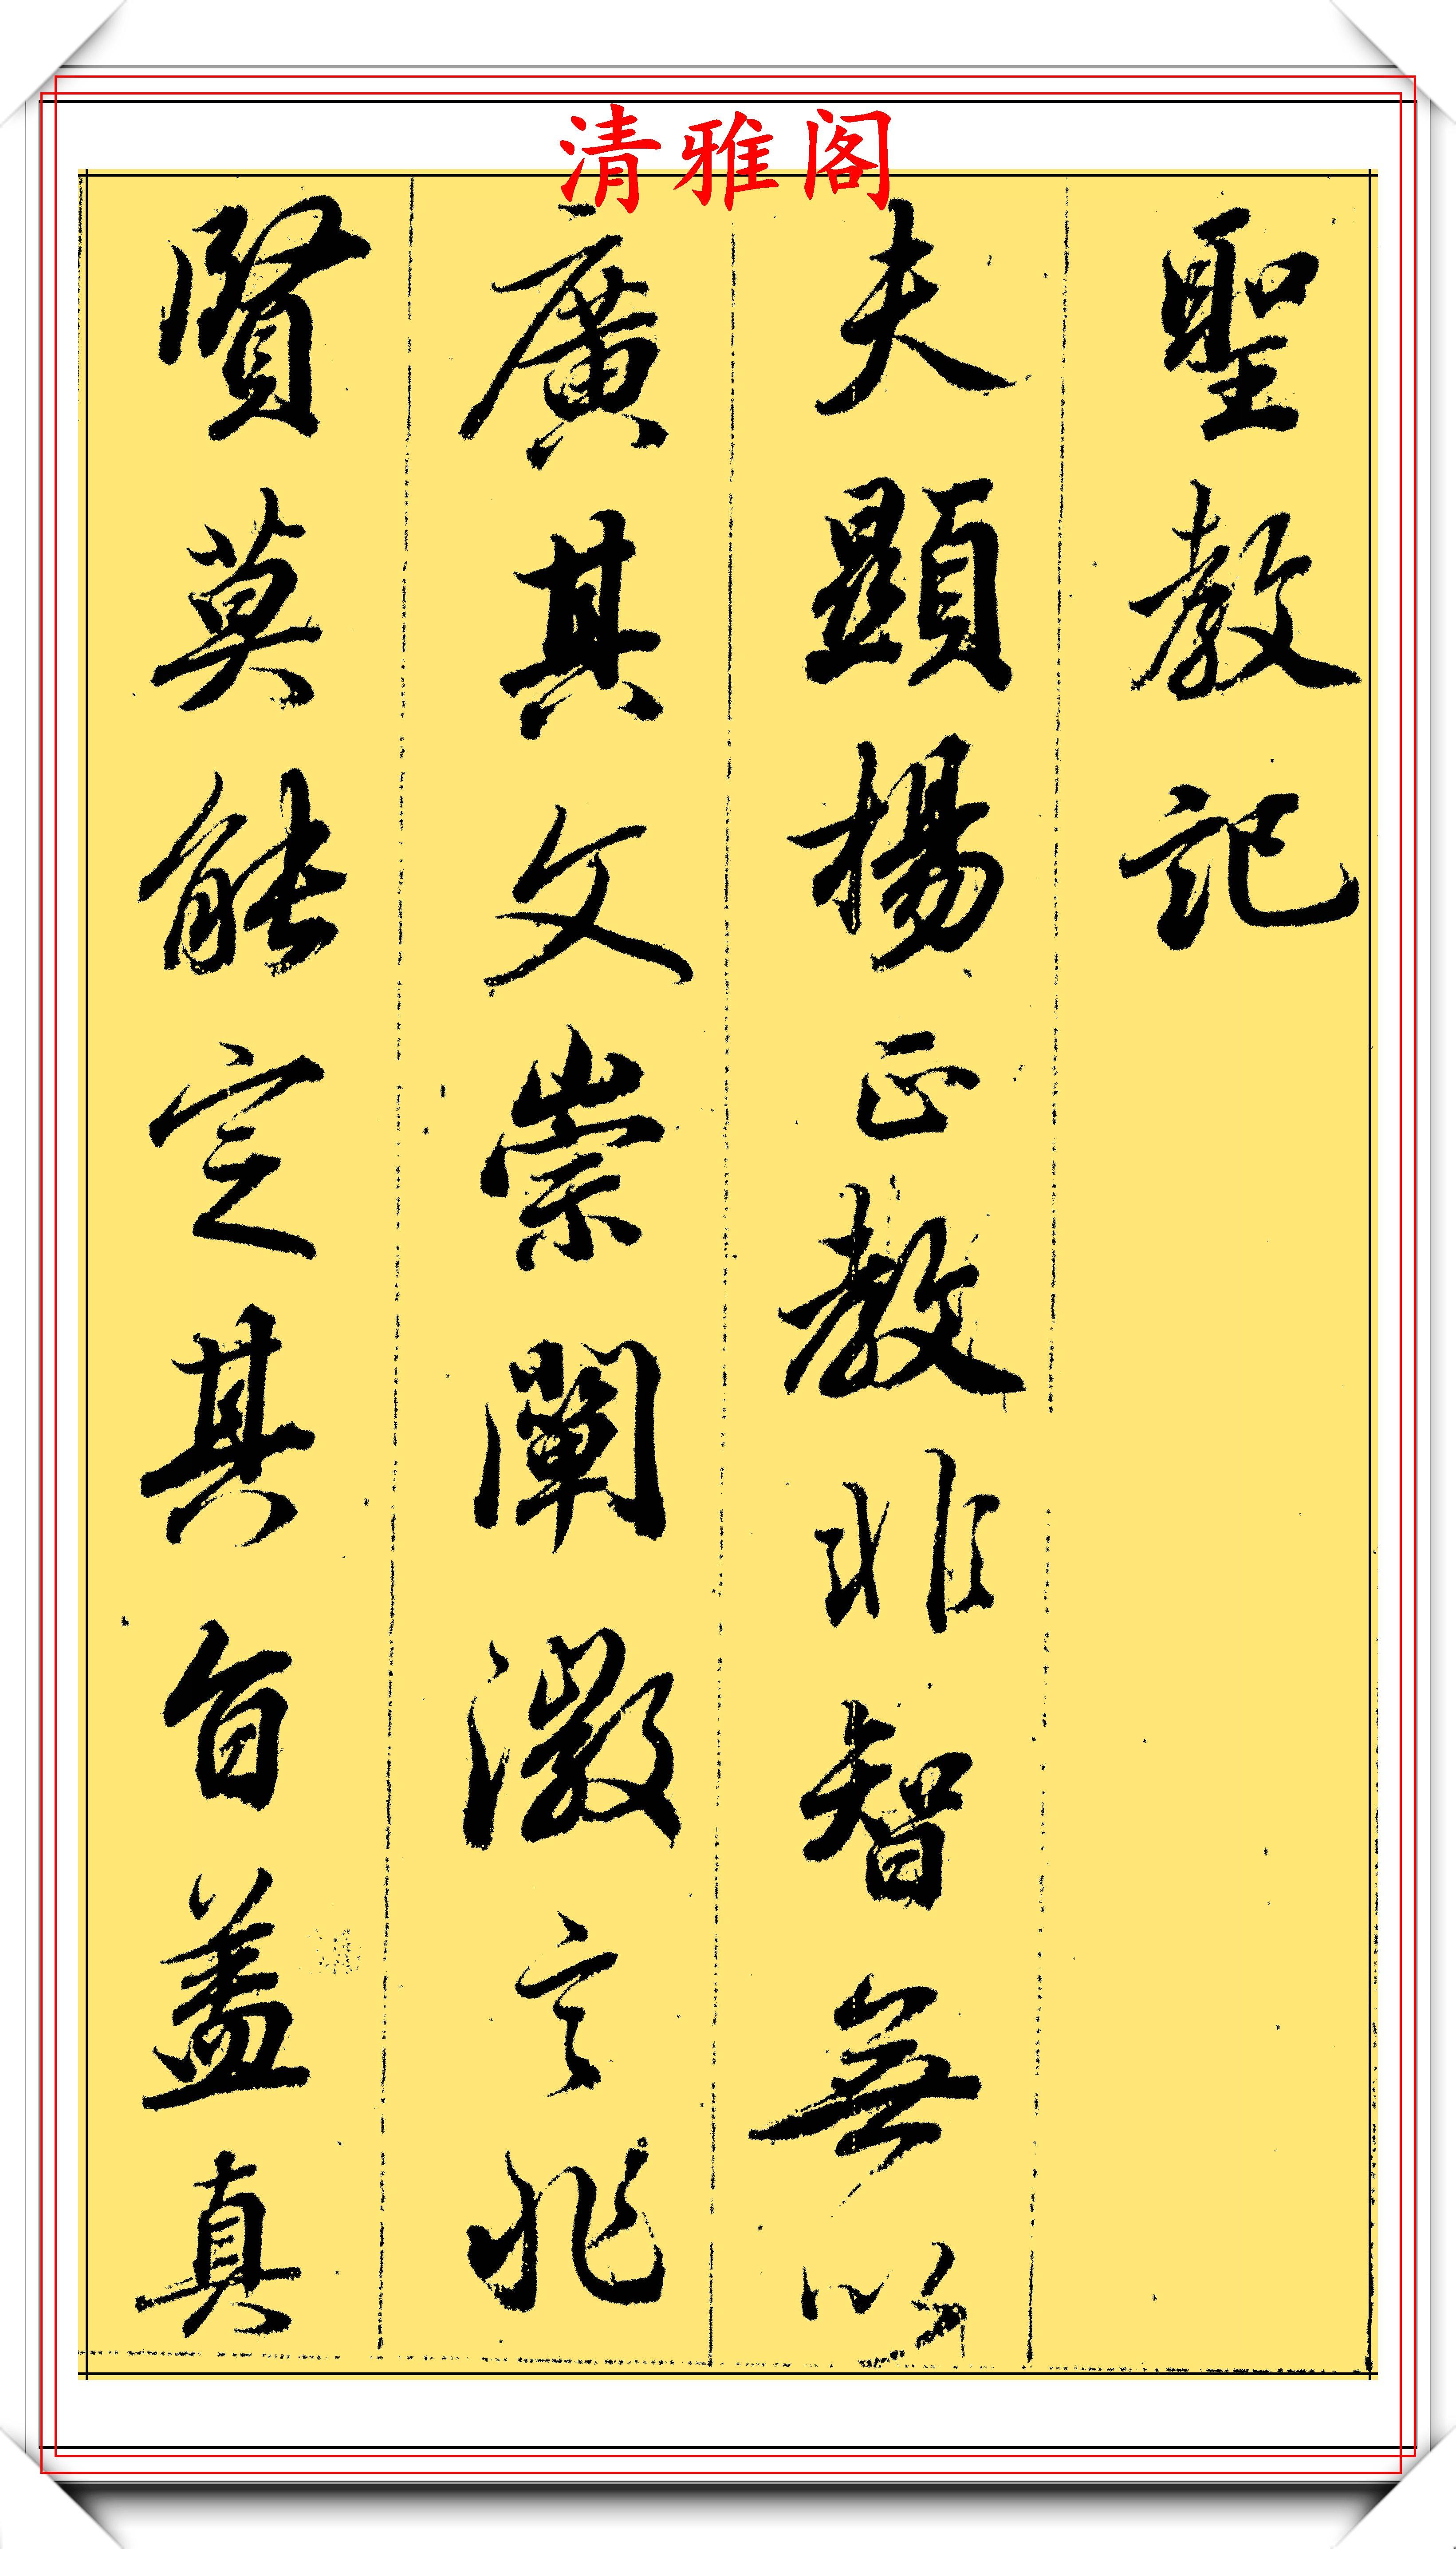 清雅阁
聖教記
夫顯揚正教非智無以
廣其文崇闡微言非
賢莫能定其旨蓋真